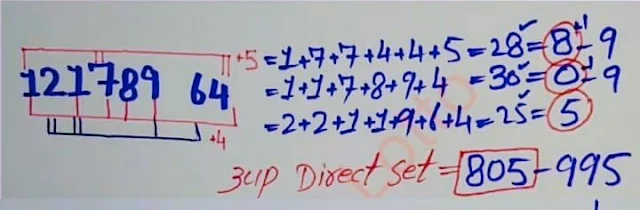 +5 = 1+7+7+4+4+5 = 28 = 8 +1 - 9
121789 64 = 1+1+7+8+9+4 = 30 = 0 - 9
= 2+2+1+1+9+6+4 = 25 = 5
+4
3up Direct Set = 805 - 995